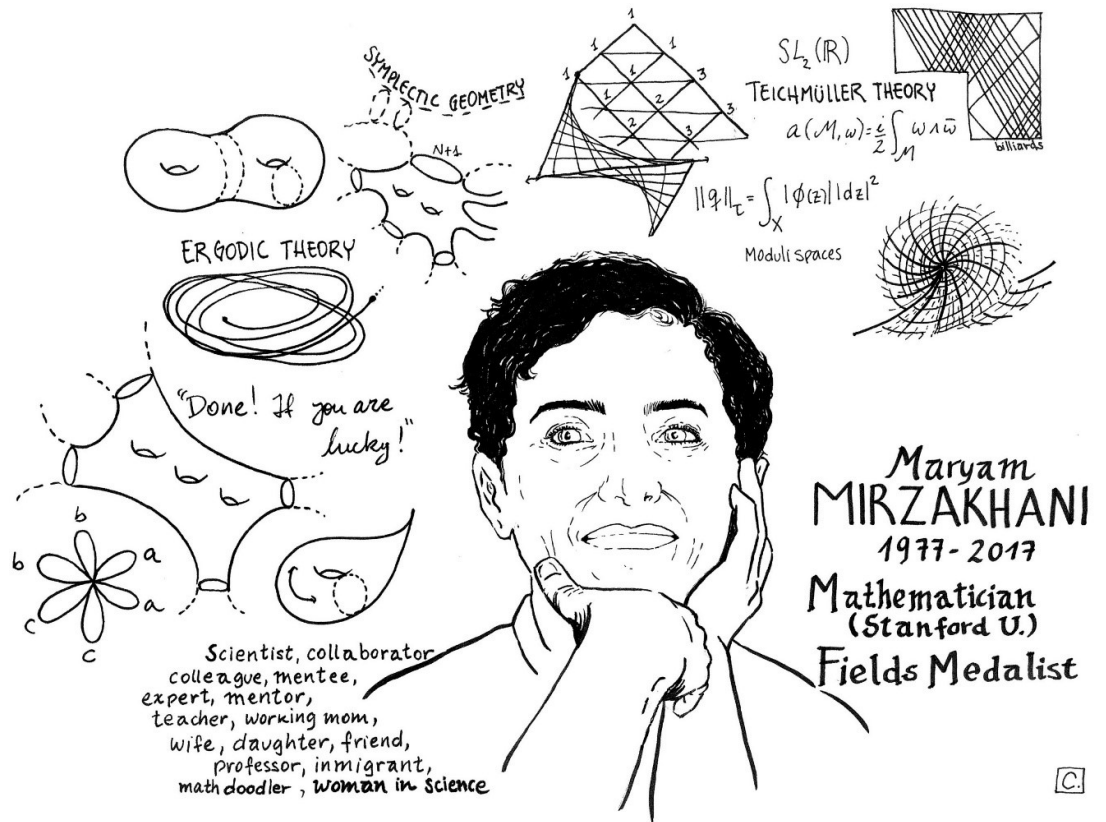 SYMPLECTIC GEOMETRY
N+1
1
1 1
1 1 3
1 2 3
2 3
SL₂(ℝ)
TEICHMÜLLER THEORY
a(M,ω)=i/2 ∫_M ω∧ω̄
billiards
||q||_τ = ∫_X |ϕ(z)||dz|²
Moduli spaces
ERGODIC THEORY
"Done! If you are
lucky!"
b
b a
a
c
c
Maryam
MIRZAKHANI
1977-2017
Mathematician
(Stanford U.)
Fields Medalist
Scientist, collaborator
colleague, mentee,
expert, mentor,
teacher, working mom,
wife, daughter, friend,
professor, inmigrant,
math doodler, woman in science
C.